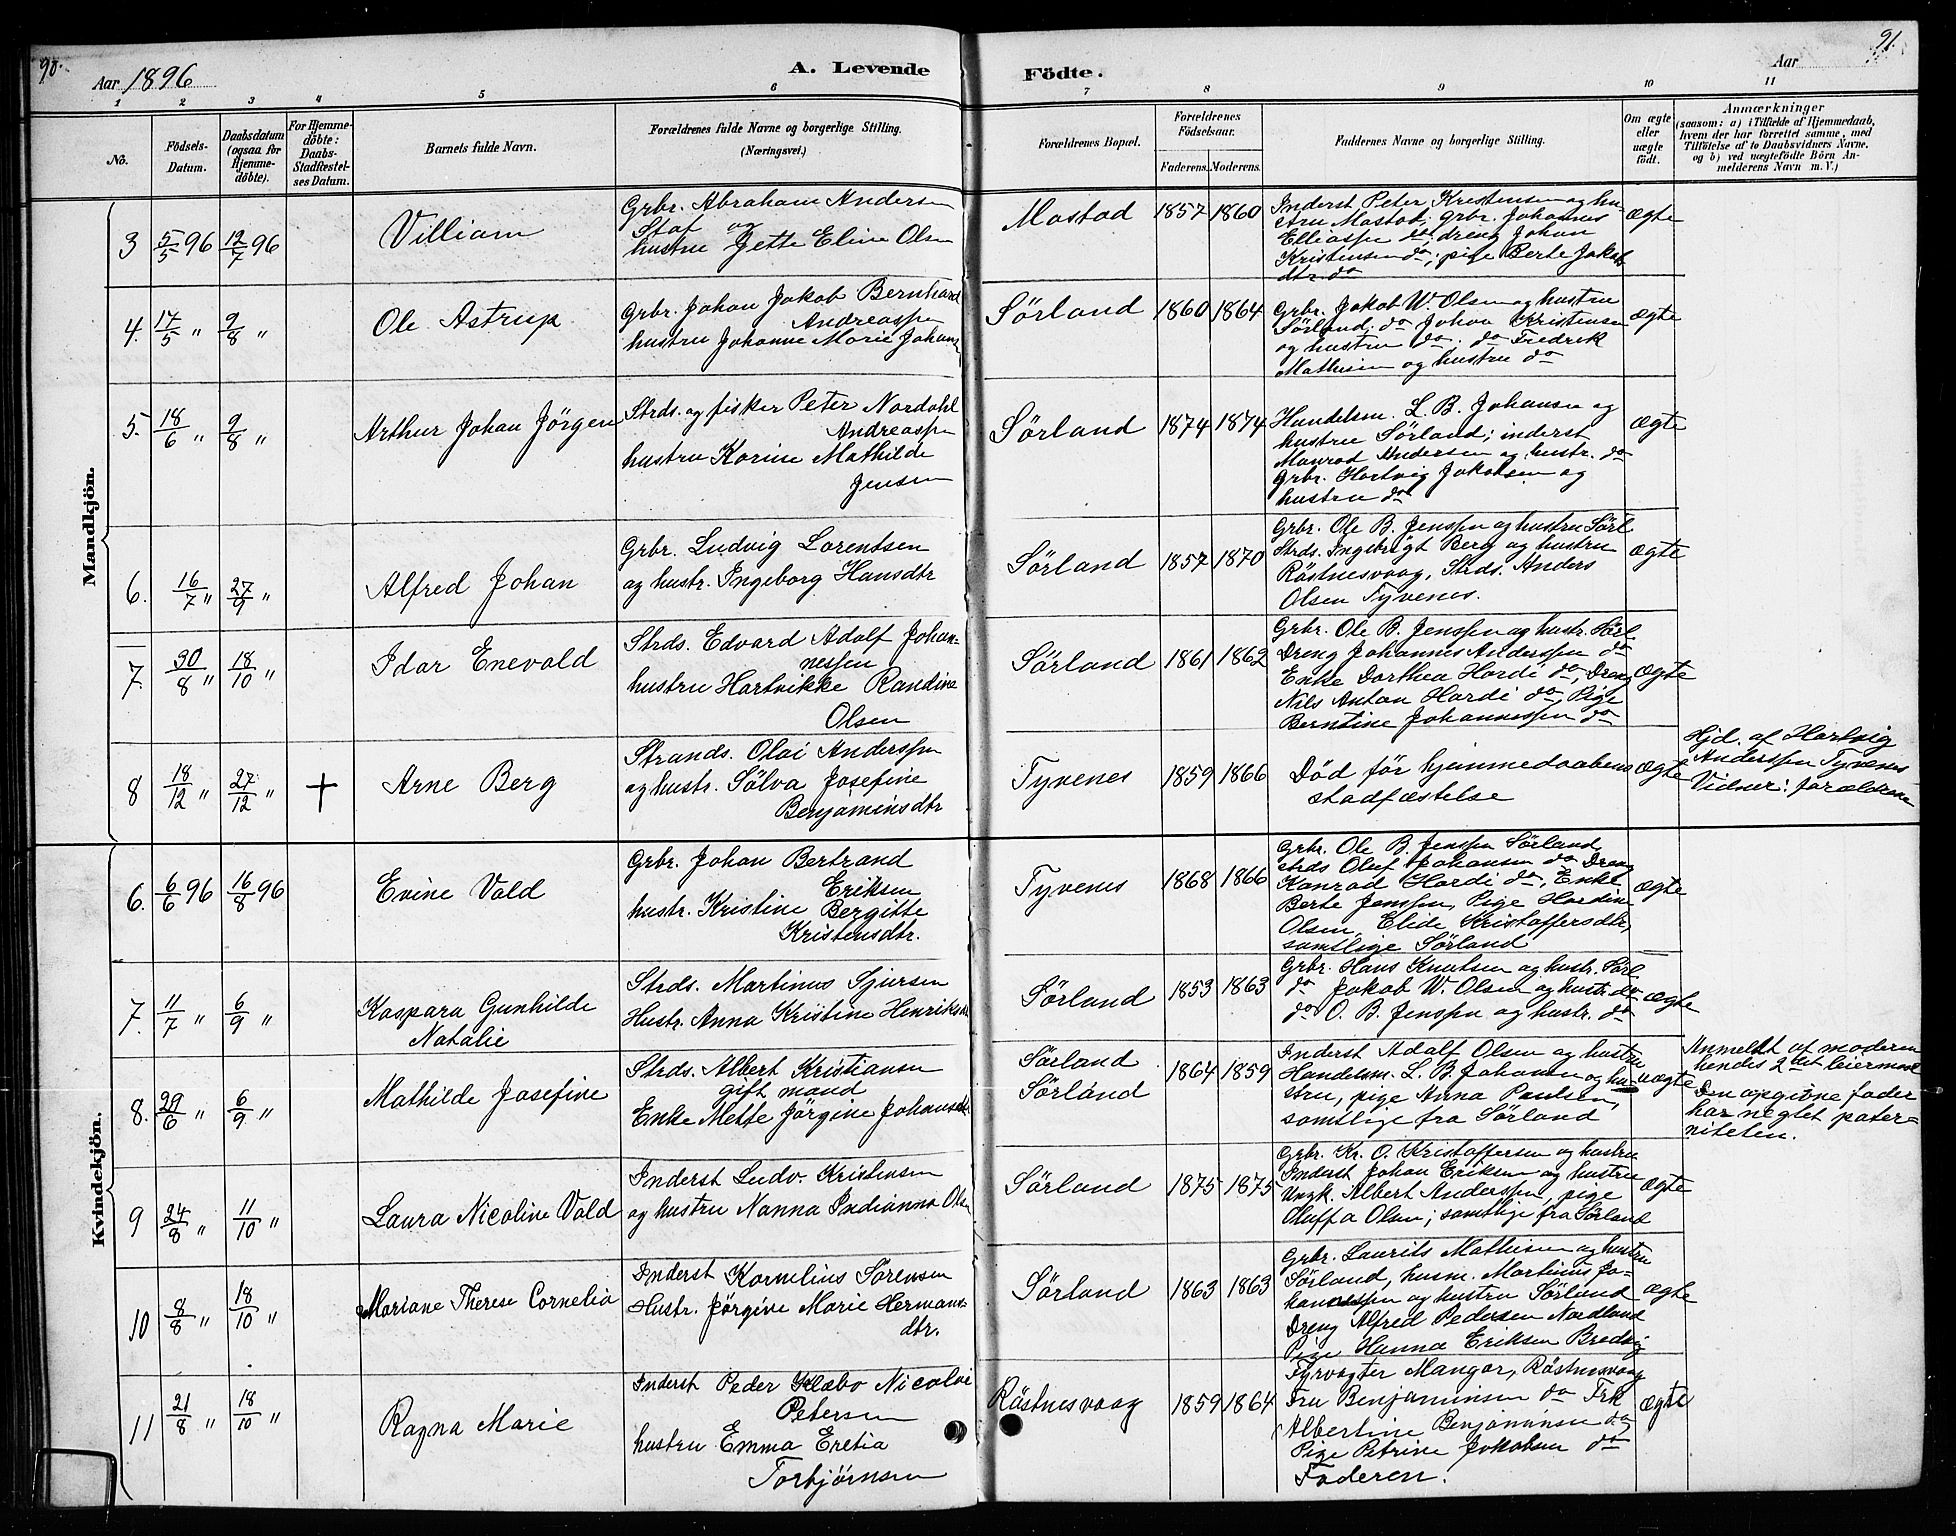 90.
Aar 1896
A. Levende
Födte.
Aar
91.
1 2 3 4 5 6 7 8 9 10 11
No.
Födsels-
Datum.
Daabsdatum
(ogsaa for
Hjemme-
døbte).
For Hjemme-
döbte:
Daabs-
Stadfæstel-
ses Datum.
Barnets fulde Navn.
Forældrenes fulde Navne og borgerlige Stilling.
(Næringsvei.)
Forældrenes Bopæl.
Forældrenes
Födselsaar.
Faderens. Moderens.
Faddernes Navne og borgerlige Stilling.
Om ægte
eller
uægte
födt.
Anmærkninger
(saasom: a) i Tilfælde af Hjemmedaab,
hvem der har forrettet samme, med
Tilföielse af to Daabsvidners Navne.
og b) ved uægtefödte Börn An-
melderens Navn m. V.)
Mandkjön.
3 5/5 96 12/7 96
Villiam
Grbr. Abraham Andersen
Staf og
hustru Jette Eline Olsen
Mostad 1857 1860
Inderst Peter Kristensen og hu-
stru Mostad; grbr. Johannes
Elliassen do; dreng Johan
Kristensen do; pige Berte Jakobs
dtr. do
ægte
4. 17/5 " 9/8 "
Ole Astrup
Grbr. Johan Jakob Bernhard
Andreassen
hustru Johanne Marie Johans
Sörland 1860 1864
Grbr. Jakob W. Olsen og hustru
Sörland, do Johan Kristensen
og hustru do. do Fredrik
Mathisen og hustru do
ægte
5. 18/6 " 9/8 "
Arthur Johan Jörgen
Strds. og fisker Peter Nordahl
Andreassen
hustru Karine Mathilde
Jensen
Sörland 1874 1874
Handelsm. L. B. Johansen og
hustru Sörland; inderst
Monrad Andersen og hustr. do
Grbr. Hartvig Jakobsen og
hustru do
ægte
6. 16/7 " 27/9 "
Alfred Johan
Grbr. Ludvig Lorentsen
og hustr. Ingeborg Hansdtr
Sörland 1857 1870
Grbr. Ole B. Jenssen og hustru Sörl.
Strds. Ingebrigt Berg og hustru
Röstnesvaag, Strds. Anders
Olsen Tyvenes.
ægte
7. 30/8 " 18/10 "
Idar Enevald
Strds. Edvard Adolf Johan-
nessen
hustru Hartvikke Randine
Olsen
Sörland 1861 1862
Grbr. Ole B. Jenssen og hustr. Sörl.
Dreng Johannes Anderssen do
Enke Dorthea Hardi do, Dreng
Nils Anton Hardi do, Pige
Berntine Johannessen do
ægte
8 18/12 " 27/12 " +
Arne Berg
Strands. Olai Anderssen
og hustr. Sölva Josefine
Benjaminsdtr
Tyvenes 1859 1866
Död för hjemmedaabens
stadfæstelse
ægte
Hjd. af Hartvig
Anderssen Tyvenes
Vidner: forældrene
Kvindekjön.
6. 6/6 96 16/8 96
Evine Vold
Grbr. Johan Bertrand
Eriksen
hustr. Kristine Bergitte
Kristensdtr.
Tyvenes 1868 1866
Grbr. Ole B. Jenssen Sörland,
strds Oluf Johansen do Dreng
Konrad Hardi do, Enke
Berte Jenssen, Pige Hardine
Olsen, Elide Kristoffersdtr,
samtlige Sörland
ægte
7. 11/7 " 6/9 "
Kaspara Gunhilde
Natalie
Strds. Martinus Sjursen
Hustr. Anna Kristine Henriksdtr
Sörland 1853 1863
Grbr. Hans Knutsen og hustr. Sörl.
do Jakob W. Olsen og hustr. do
do O. B. Jenssen og hustr. do
ægte
8. 29/6 " 6/9 "
Mathilde Josefine
Strds. Albert Kristiansen
gift mand
Enke Mette Jörgine Johansdtr
Sörland
Sörland
1864 1859
Inderst Adolf Olsen og hustru
Handelsm. L. B. Johansen og hu-
stru, pige Anna Paulsen,
samtlige fra Sörland
uægte
Anmeldt af moderen
hendes 2det leiermaal
Den opgivne fader
har negtet pater-
niteten.
9 24/8 " 11/10 "
Laura Nicoline Vold
Inderst Ludv. Kristensen
og hustru Nanna Indianna Olsen
Sörland 1875 1875
Grbr. Kr. O. Kristoffersen og hustru
Inderst Johan Eriksen og hustru
Ungk. Albert Anderssen, pige
Oluffa Olsen; samtlige fra Sörland
ægte
10 8/8 " 18/10 "
Mariane Therese Cornelia
Inderst Kornelius Sörensen
Hustr. Jörgine Marie Hermans-
dtr.
Sörland 1863 1863
Grbr. Laurits Mathisen og hustru
Sörland, husm. Martinus Jo-
hannessen og hustru Sörland
Dreng Alfred Pedersen Nordland
Pige Hanna Eriksen Bredvig
ægte
11 21/8 " 18/10 "
Ragna Marie
Inderst Peder Klæbo Nicolai
Petersen
hustru Emma Eretia
Torbjörnsen
Röstnesvaag 1859 1864
Fyrvogter Mangor, Röstnesvaag
Fru Benjaminsen do Frk
Albertine Benjaminsen do
Pige Petrine Jakobsen do
Faderen.
ægte